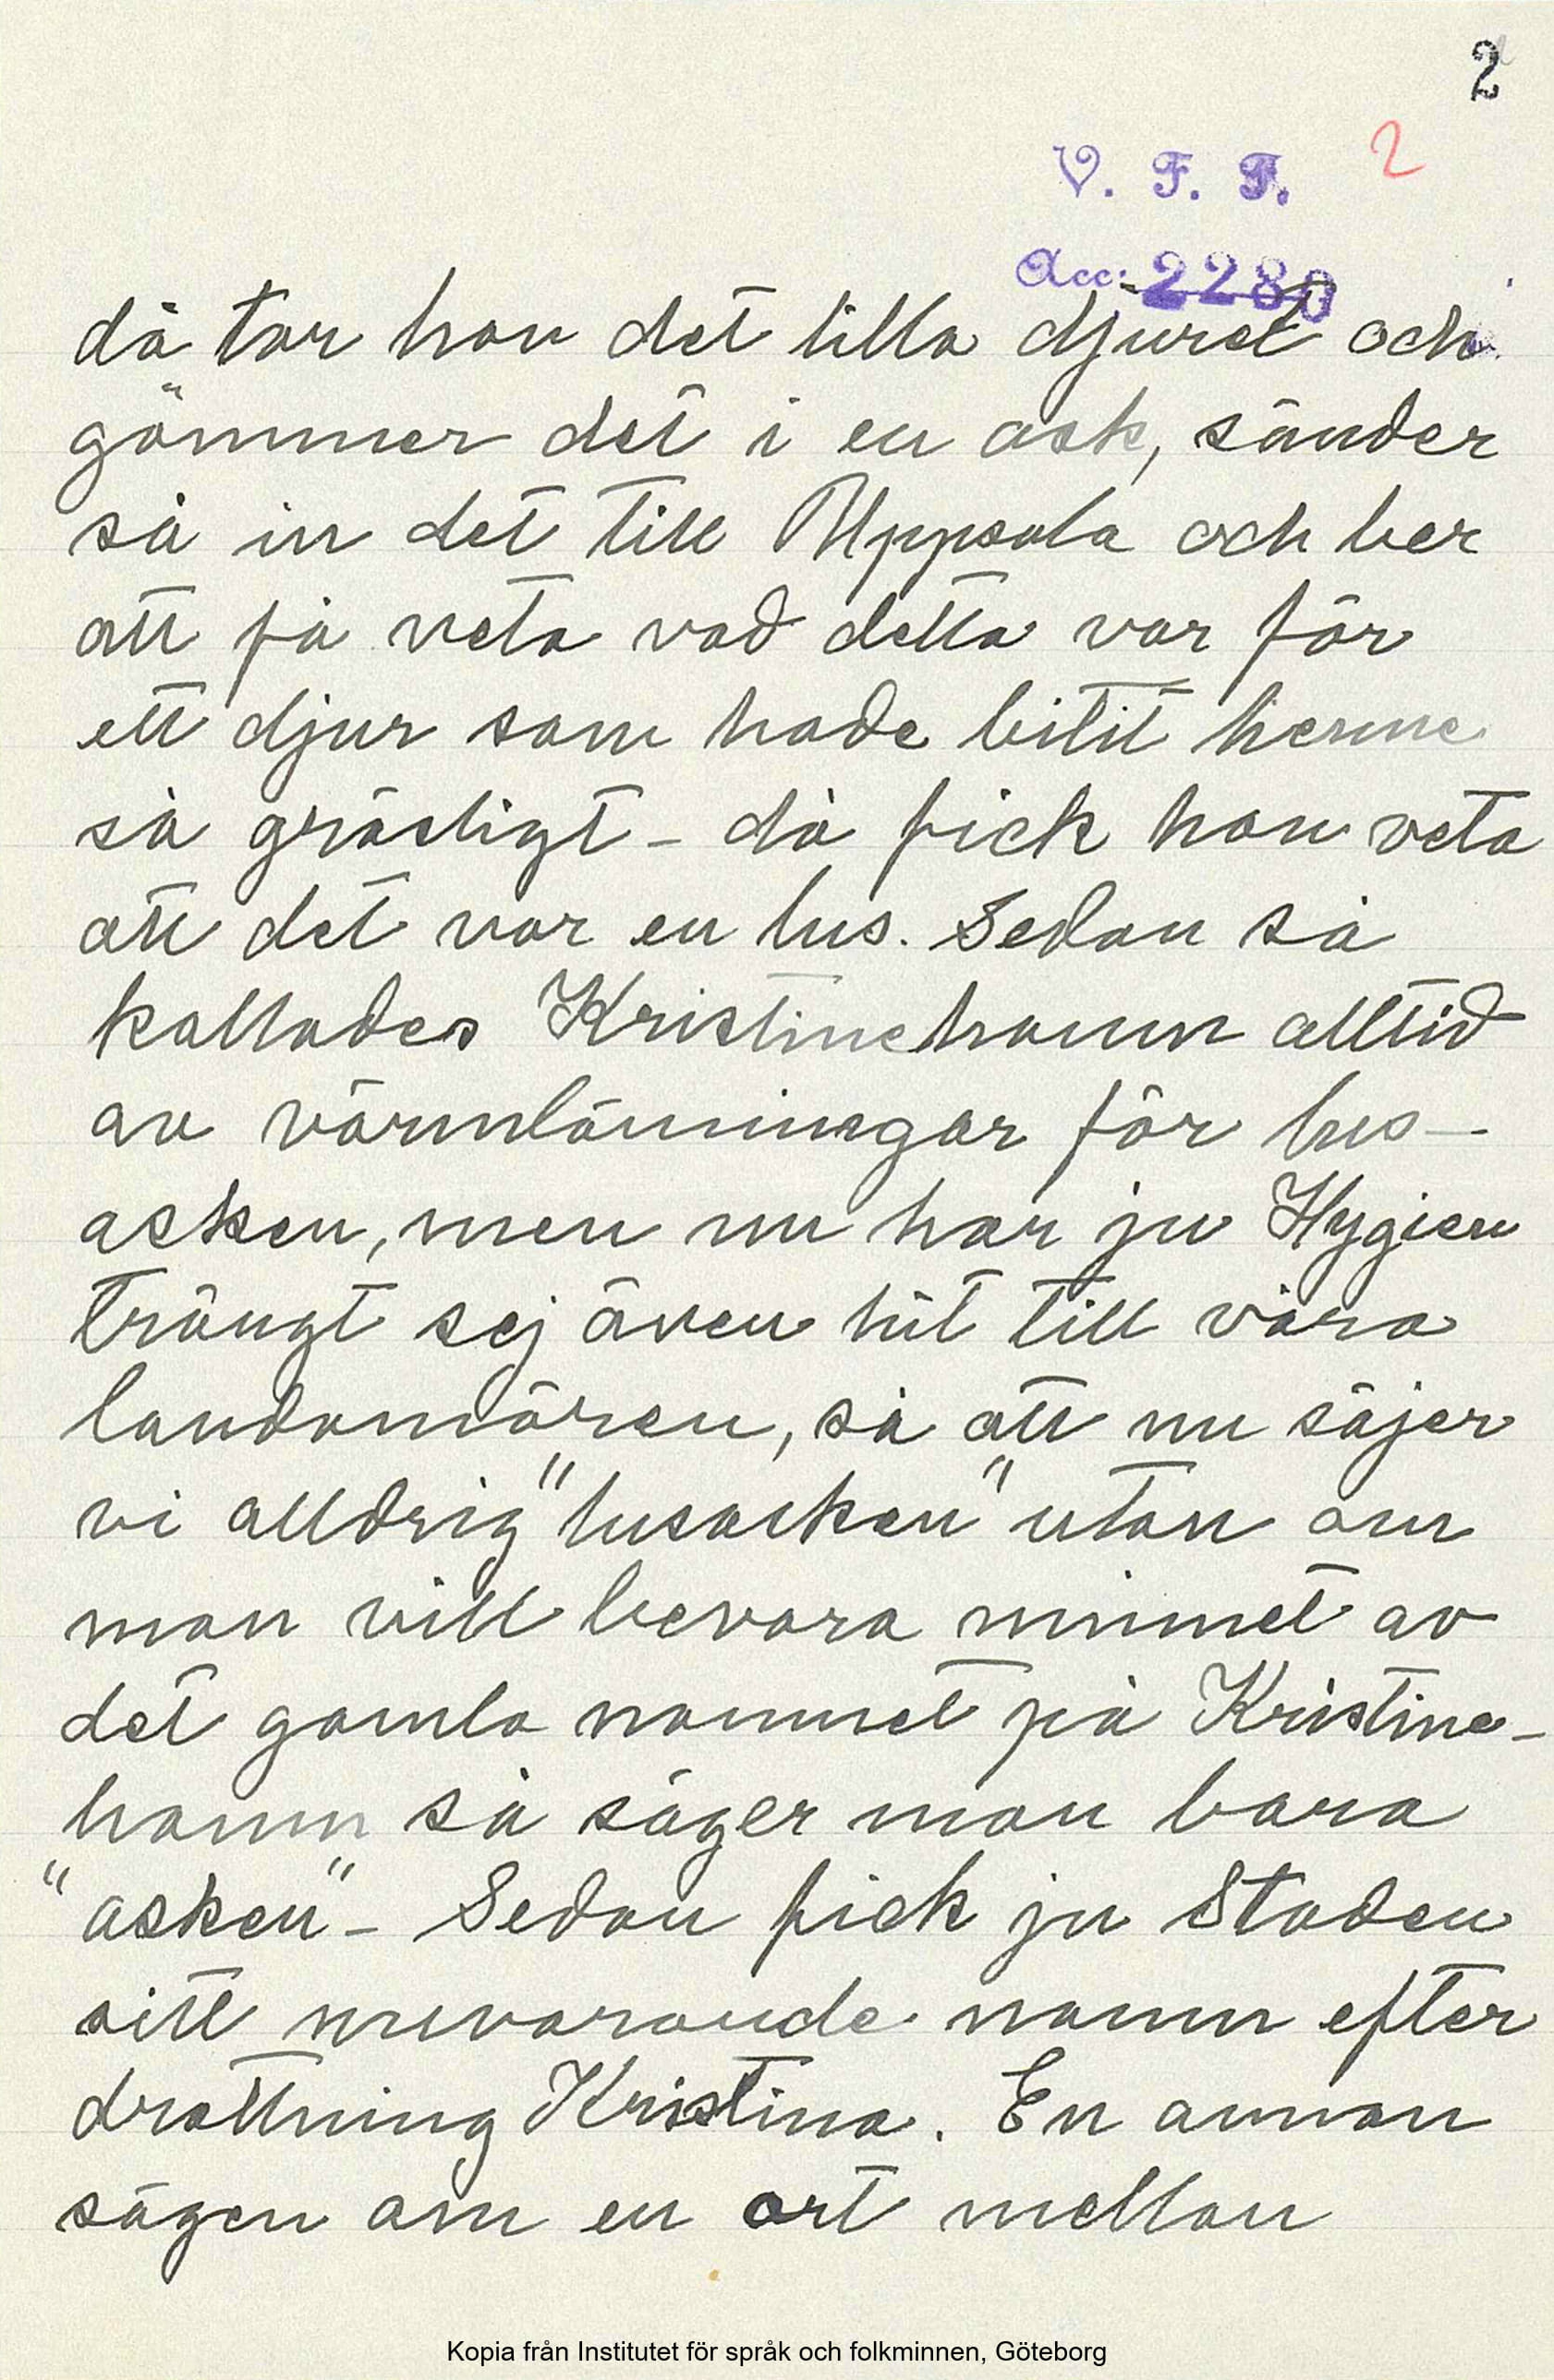 2
2
V. F. F.
Acc: 2280
då tar han det lilla djuret och
gömmer det i en ask, sänder
så in det till Uppsala och ber
att få veta vad detta var för
ett djur som hade bitit henne
så gräsligt - då fick han veta
att det var en lus. Sedan så
kallades Kristinehamn alltid
av värmlänningar för lus-
asken, men nu har ju Hygien
trängt sej även hit till våra
landamären, så att nu säjer
vi alldrig "lusasken" utan om
man vill bevara minnet av
det gamla namnet på Kristine-
hamn så säger man bara
"asken" - Sedan fick ju Staden
sitt nuvarande namn efter
drottning Kristina. En annan
sägen om en ort mellan
Kopia från Institutet för språk och folkminnen, Göteborg